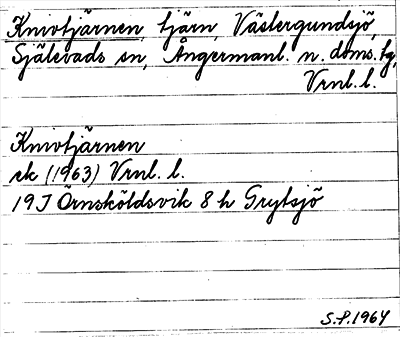 Knivtjärnen, tjärn, Västergundsjö,
Själevads sn, Ångermanl. n. doms. tg,
Vrnl. l.
Knivtjärnen
ek (1963) Vrnl. l.
19J Örnsköldsvik 8 h Grytsjö
S.P. 1964